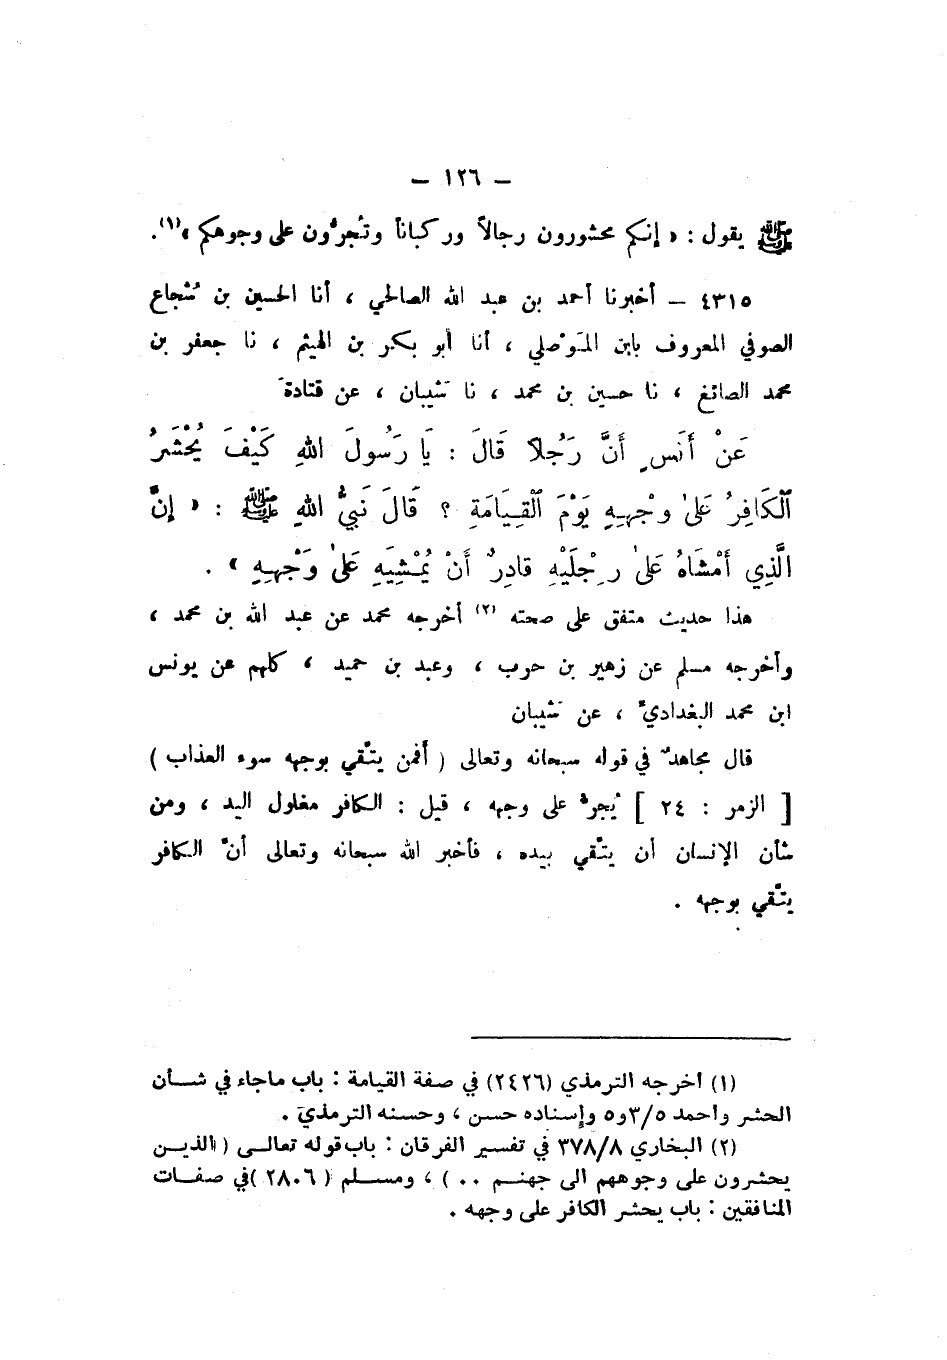 – ١٢٦ –
ﷺ يقول : « إنكم محشورون رجالاً وركباناً وتُجرُّون على وجوهكم »(١).
٤٣١٥ – أخبرنا أحمد بن عبد الله الصالحي ، أنا الحسين بن شُجاع
الصوفي المعروف بابن المَوْصلي ، أنا أبو بكر بن الهيثم ، نا جعفر بن
محمد الصائغ ، نا حسين بن محمد ، نا شَيبان ، عن قتادةَ
عَنْ أَنَسٍ أَنَّ رَجُلاً قَالَ : يَا رَسُولَ اللهِ كَيْفَ يُحْشَرُ
ٱلْكَافِرُ عَلَىٰ وجْهِهِ يَوْمَ ٱلْقِيَامَةِ ؟ قَالَ نَبِيُّ اللهِ ﷺ : « إِنَّ
الَّذِي أَمْشَاهُ عَلَىٰ رِجْلَيْهِ قادِرٌ أَنْ يُمْشِيَهِ عَلَىٰ وَجْهِهِ » .
هذا حديث متفق على صحته (٢) أخرجه محمد عن عبد الله بن محمد ،
وأخرجه مسلم عن زهير بن حرب ، وعبد بن حميد ، كلهم عن يونس
ابن محمد البغداديّ ، عن شَيبان
قال مجاهدٌ في قوله سبحانه وتعالى ( أفمن يتَّقي بوجهه سوء العذاب )
[ الزمر : ٢٤ ] يُجرُّ على وجهه ، قيل : الكافر مغلول اليد ، ومن
شأن الإنسان أن يتَّقي بيده ، فأخبر الله سبحانه وتعالى أنَّ الكافر
يتَّقي بوجهه .
(١) أخرجه الترمذي (٢٤٢٦) في صفة القيامة : باب ماجاء في شــأن
الحشر وأحمد ٣/٥و٥ وإسناده حسن ، وحسنه الترمذي .
(٢) البخاري ٣٧٨/٨ في تفسير الفرقان : باب قوله تعالــى (الذيــن
يحشرون على وجوههم الى جهنــم .. ) ، ومســلم ( ٢٨٠٦ )في صفــات
المنافقين : باب يحشر الكافر على وجهه .